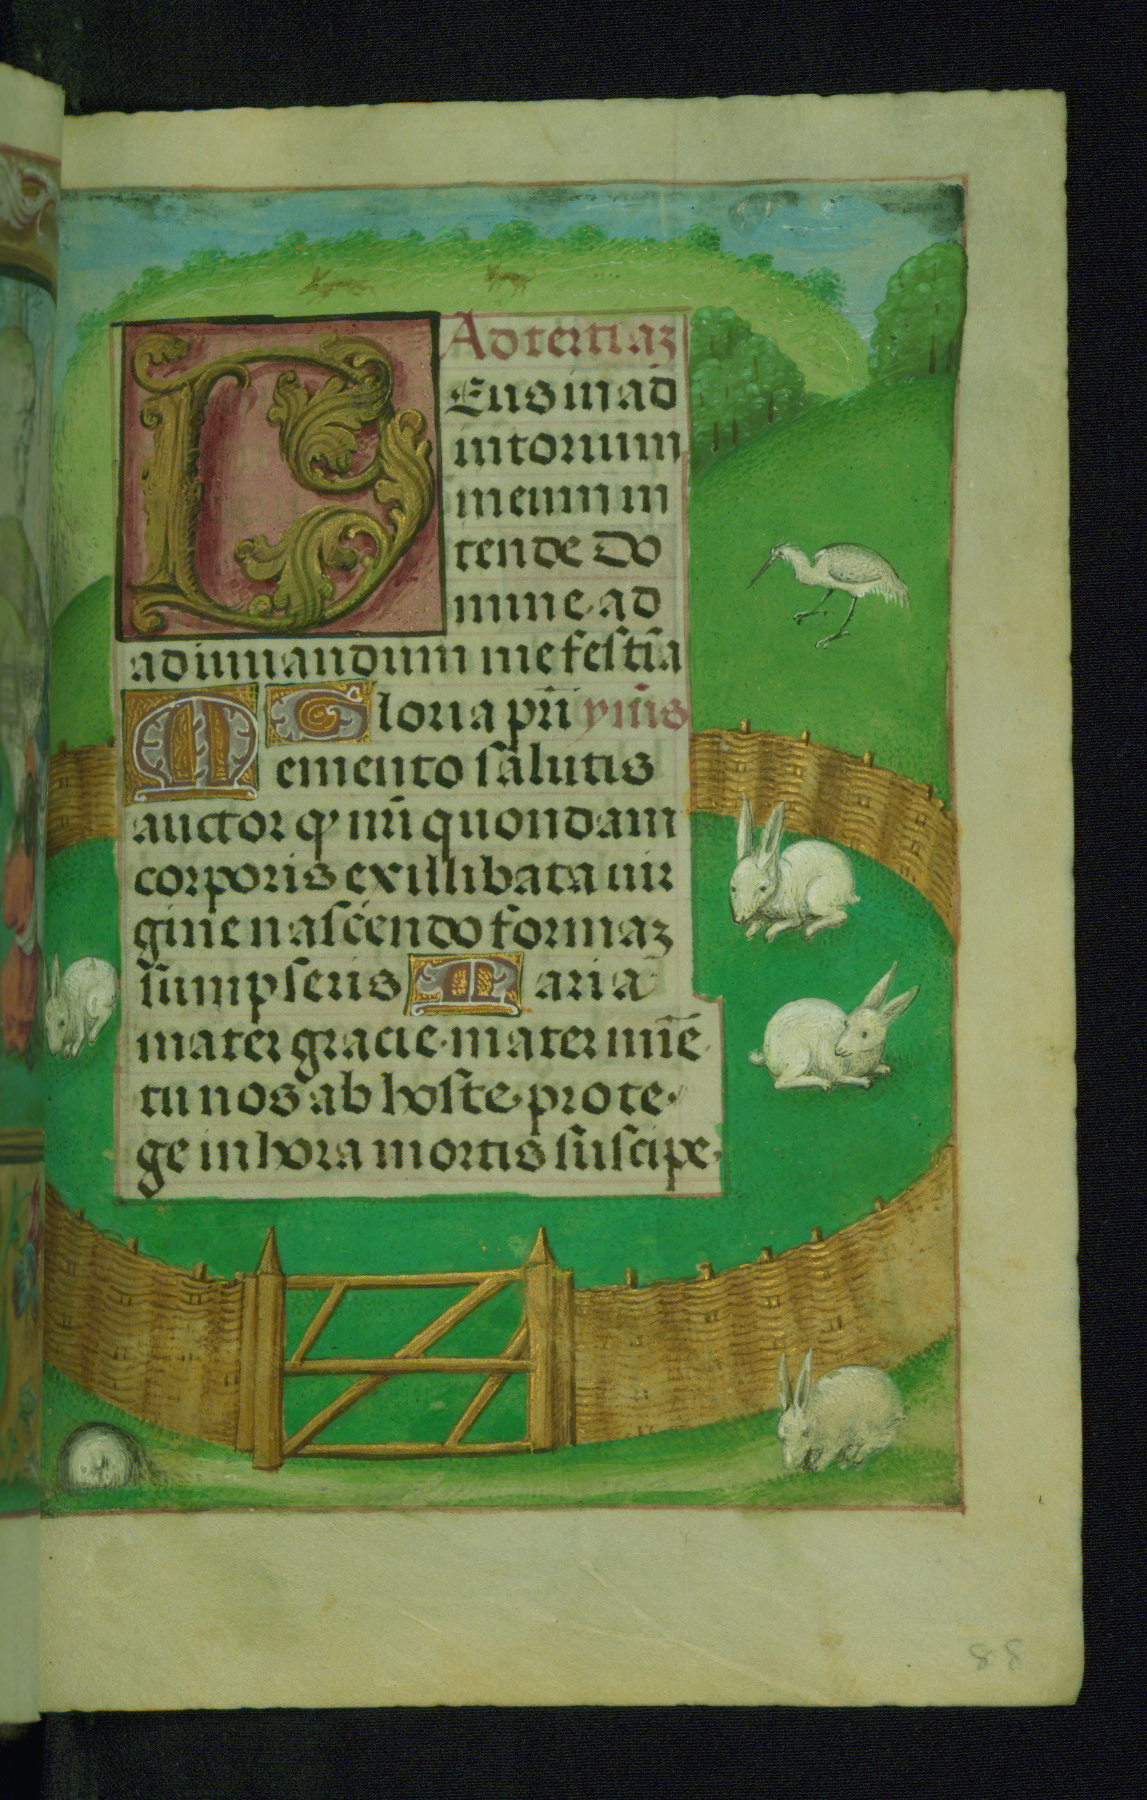 Ad terciaz
DEus in ad
iutorium
meum in
tende Do
mine ad
adiuuandum me festīa
Gloria pr̄i ym̄s
Memento salutis
auctor qͥ nr̄i quondam
corporis ex illibata uir
gine nascēndo formaz
sumpseris Maria
mater gracie. mater mīe
tu nos ab hoste. prote.
ge in hora mortis suscipe.
88